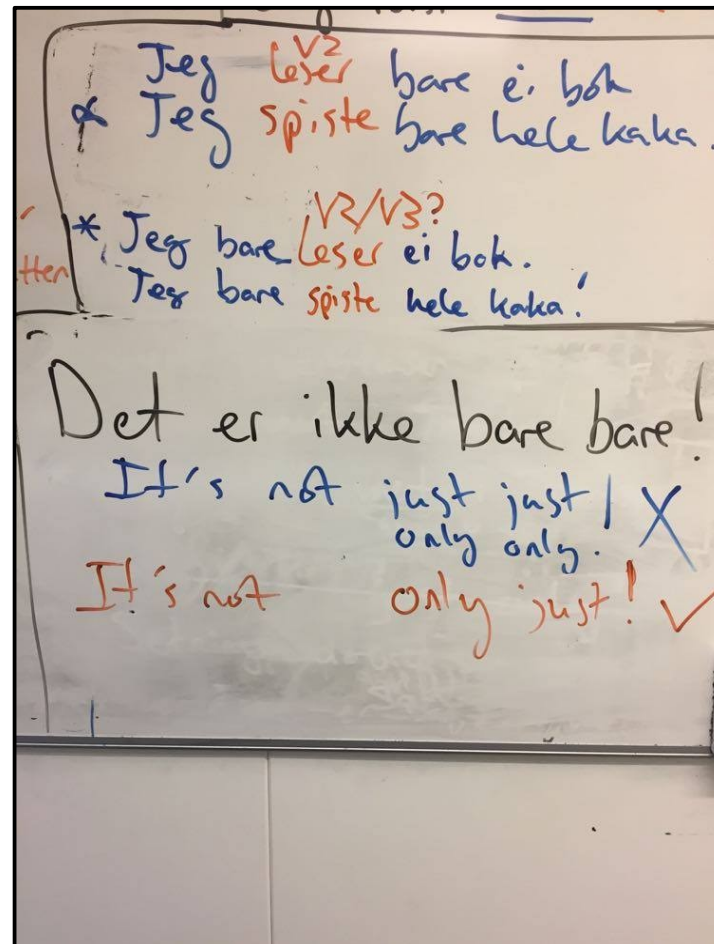 V2
Jeg leser bare ei bok
Jeg spiste bare hele kaka.
V2/V3?
* Jeg bare leser ei bok.
Jeg bare spiste hele kaka!
Det er ikke bare bare!
It's not just just! X
only only.
It's not only just! ✓